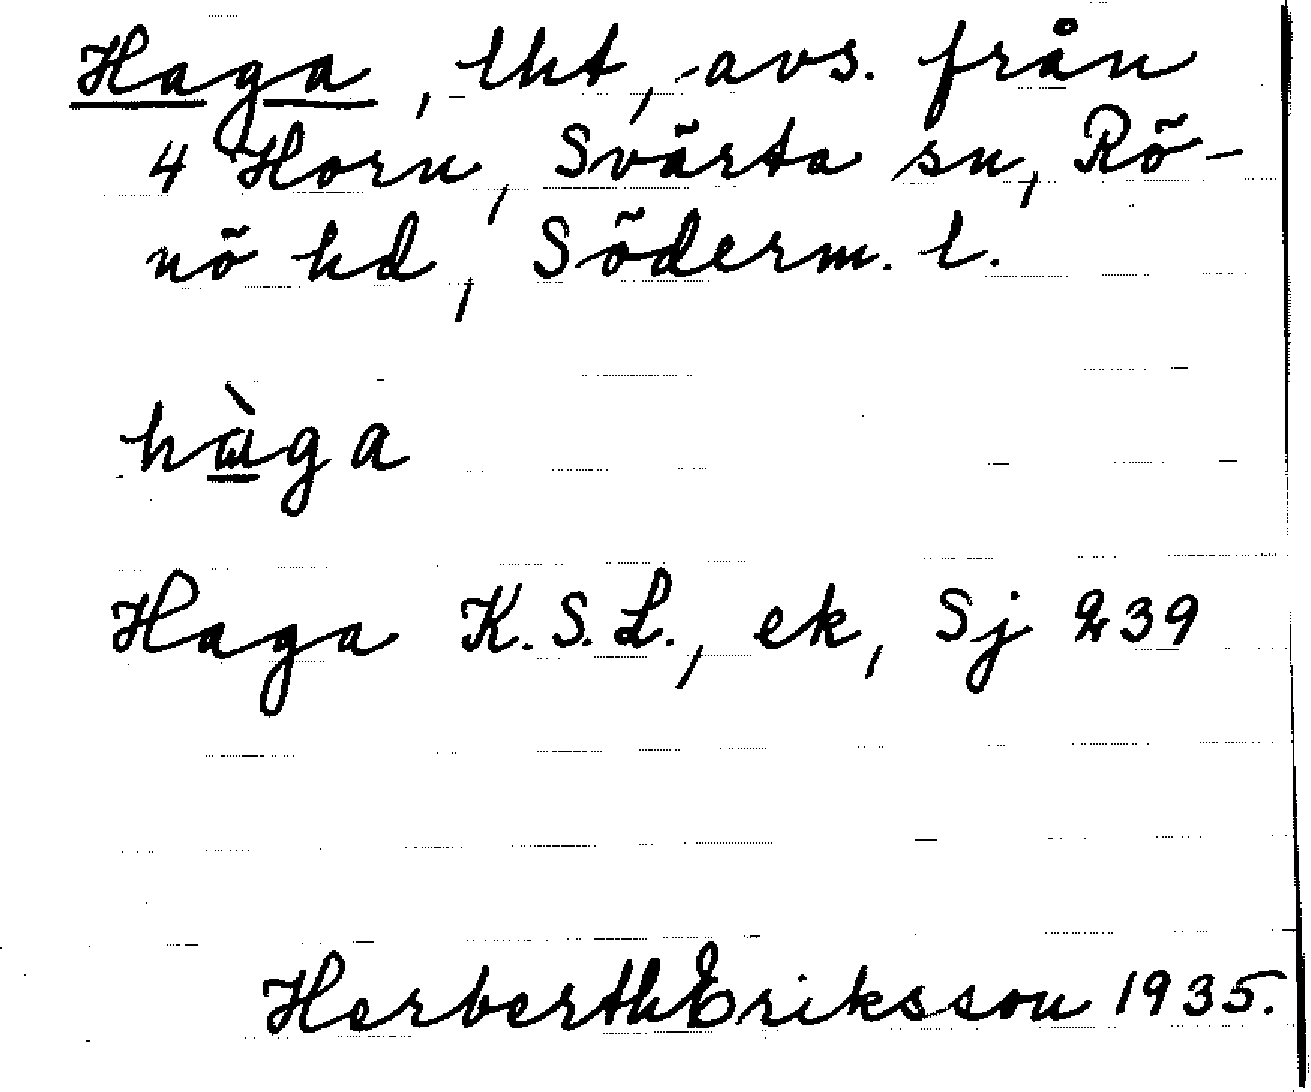 Haga, lht, avs. från
4 Horn, Svärta sn, Rö-
nö hd, Söderm. l.
Haga K.S.L., ek, Sj 239
Herberth Eriksson 1935.